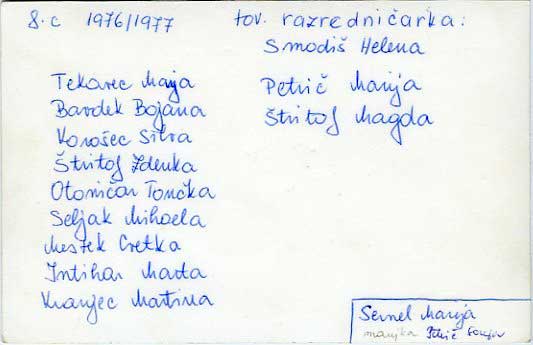 8.c 1976/1977
tov. razredničarka:
Smodiš Helena
Petrič Marija
Štritof Magda
Tekavec Marja
Bavdek Bojana
Korošec Silva
Štritof Zdenka
Otoničar Tončka
Seljak Mihaela
Mestek Cvetka
Intihar Marta
Kranjec Martina
Sernel Marija
manjka Petrič